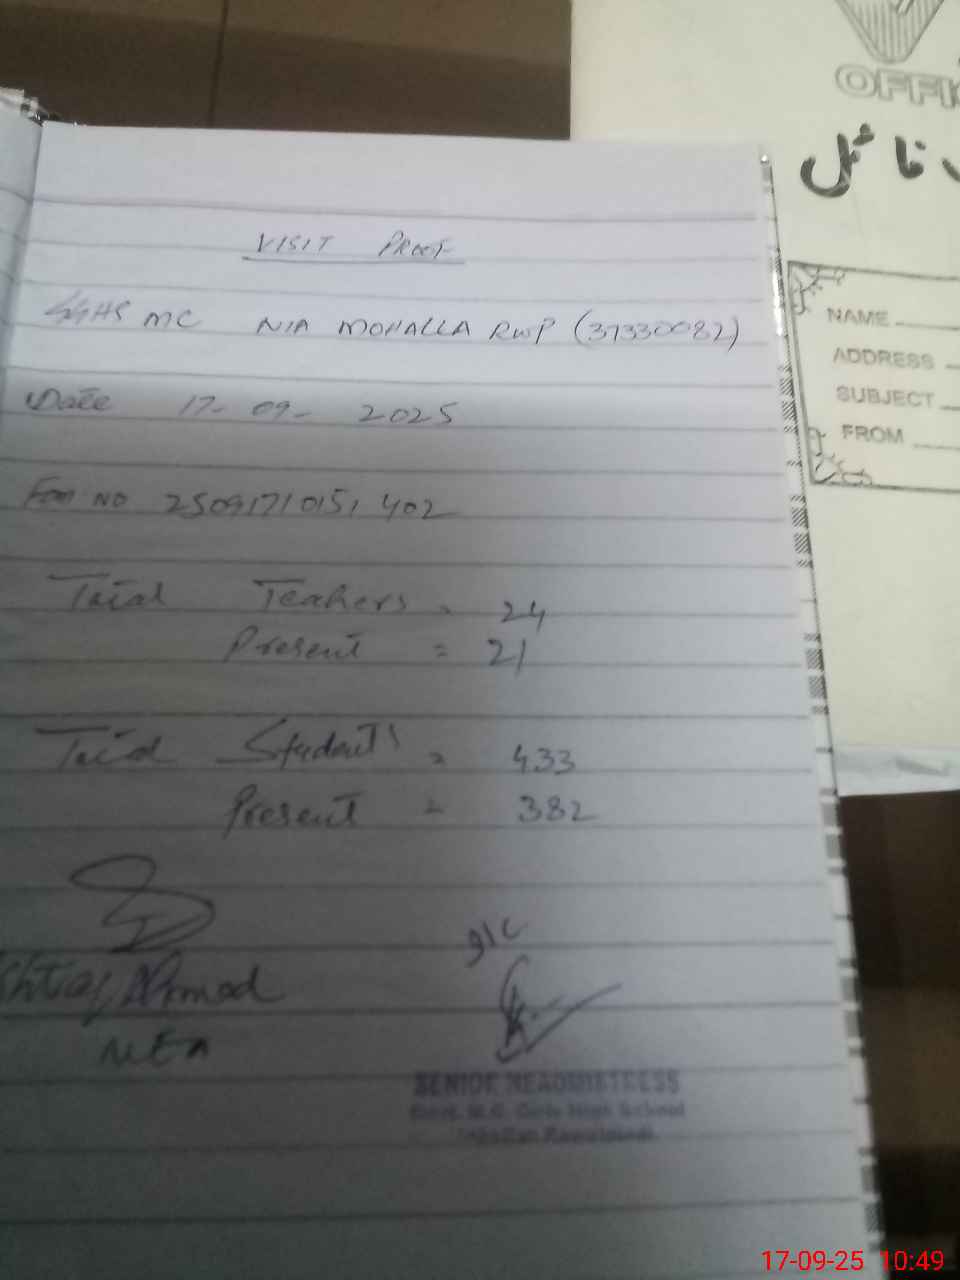 VISIT PROOF
GGHS MC NIA MOHALLA RWP (37330082)
Date 17-09-2025
Form NO 250917 10151 402
Total Teachers = 24
Present = 21
Total Students = 433
Present = 382
Ahmad
MEA
I/C
SENIOR HEADMISTRESS
Govt. M.C. Girls High School
Rawalpindi
OFFI
فائل
NAME
ADDRESS
SUBJECT
FROM
17-09-25 10:49